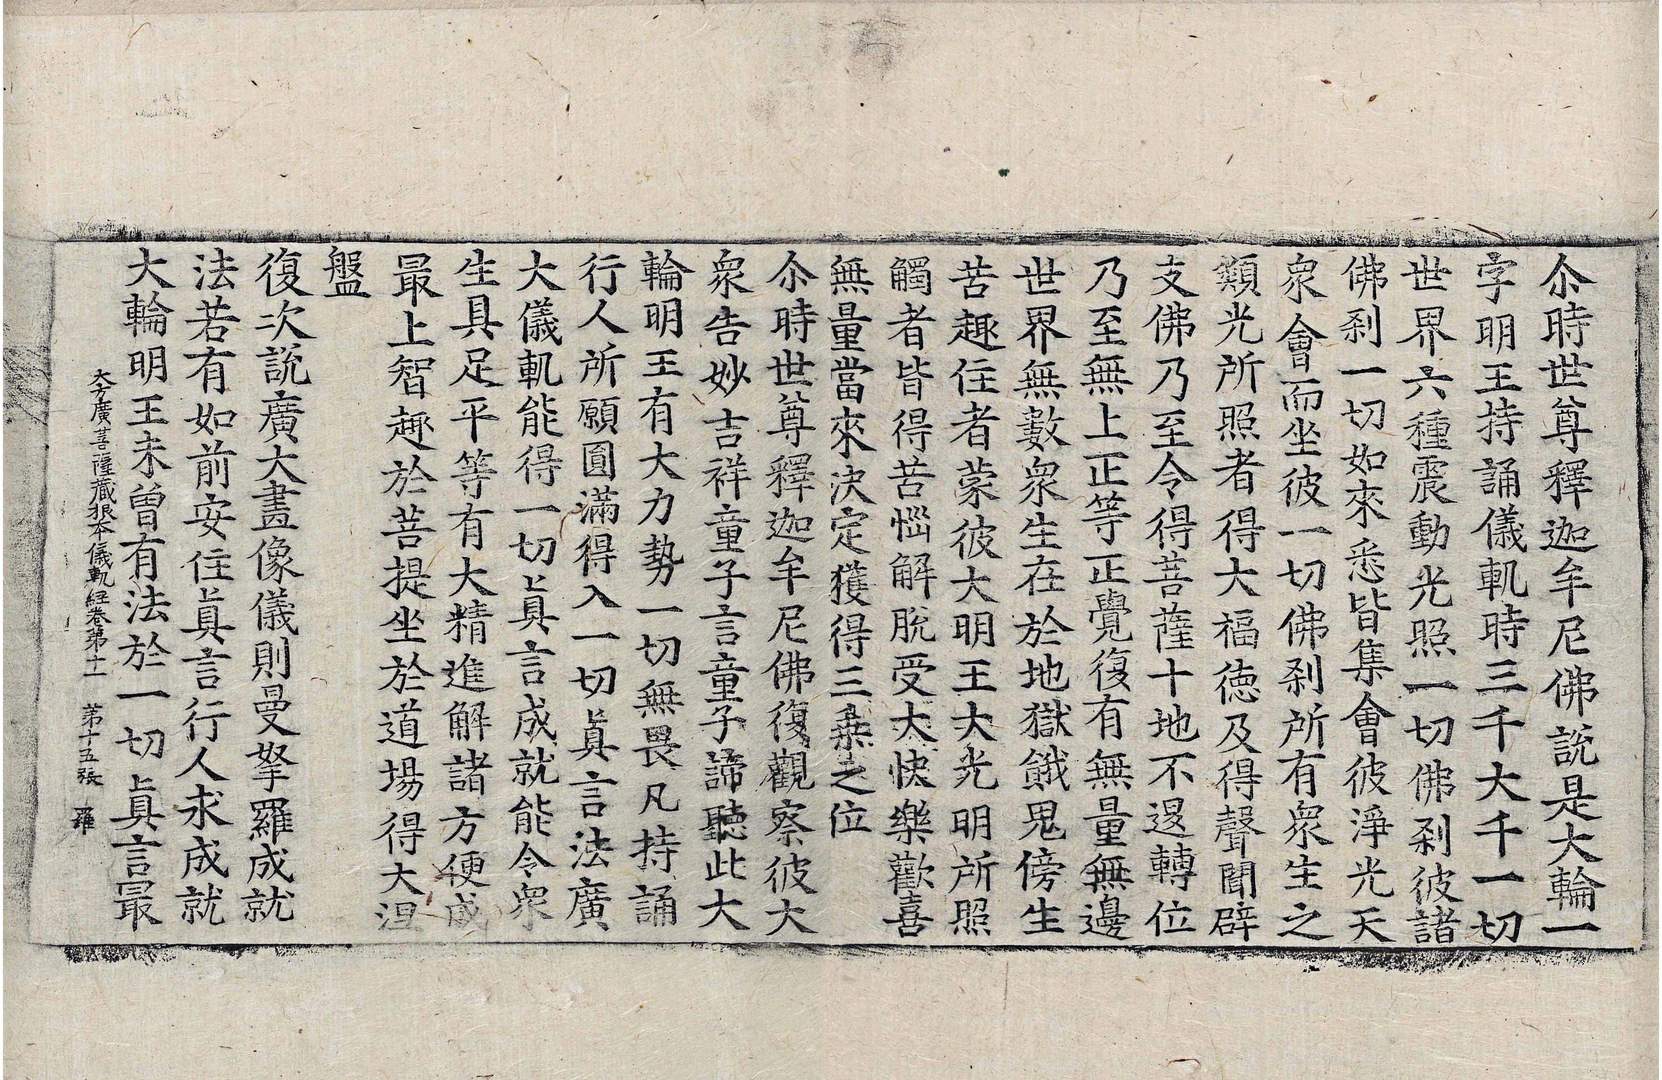 尒時世尊釋迦牟尼佛說是大輪一
字明王持誦儀軌時三千大千一切
世界六種震動光照一切佛刹彼諸
佛刹一切如來悉皆集會彼淨光天
衆會而坐彼一切佛刹所有衆生之
類光所照者得大福德及得聲聞辟
支佛乃至令得菩薩十地不退轉位
乃至無上正等正覺復有無量無邊
世界無數衆生在於地獄餓鬼傍生
苦趣住者蒙彼大明王大光明所照
觸者皆得苦惱解脫受大快樂歡喜
無量當來決定獲得三乗之位
尒時世尊釋迦牟尼佛復觀察彼大
衆告妙吉祥童子言童子諦聽此大
輪明王有大力勢一切無畏凡持誦
行人所願圓滿得入一切眞言法廣
大儀軌能得一切眞言成就能令衆
生具足平等有大精進解諸方便成
最上智趣於菩提坐於道場得大涅
盤
復次說廣大畫像儀則曼拏羅成就
法若有如前安住眞言行人求成就
大輪明王未曾有法於一切眞言最
大方廣菩薩藏根本儀軌經卷第十一 第十五張 羅